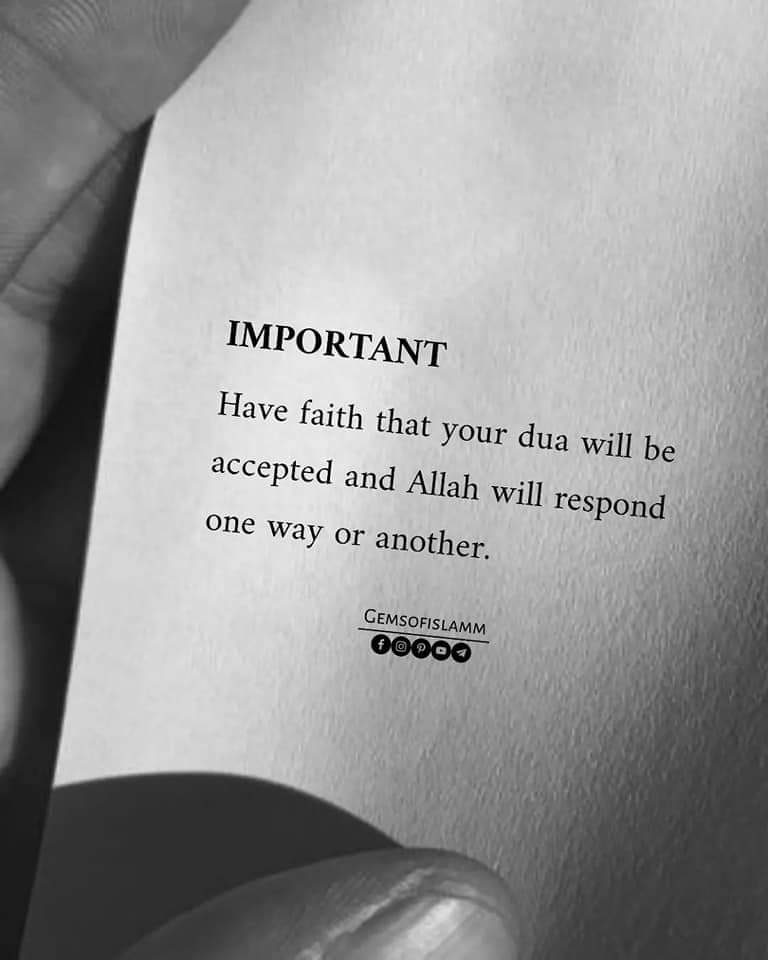 IMPORTANT
Have faith that your dua will be
accepted and Allah will respond
one way or another.
GEMSOFISLAMM